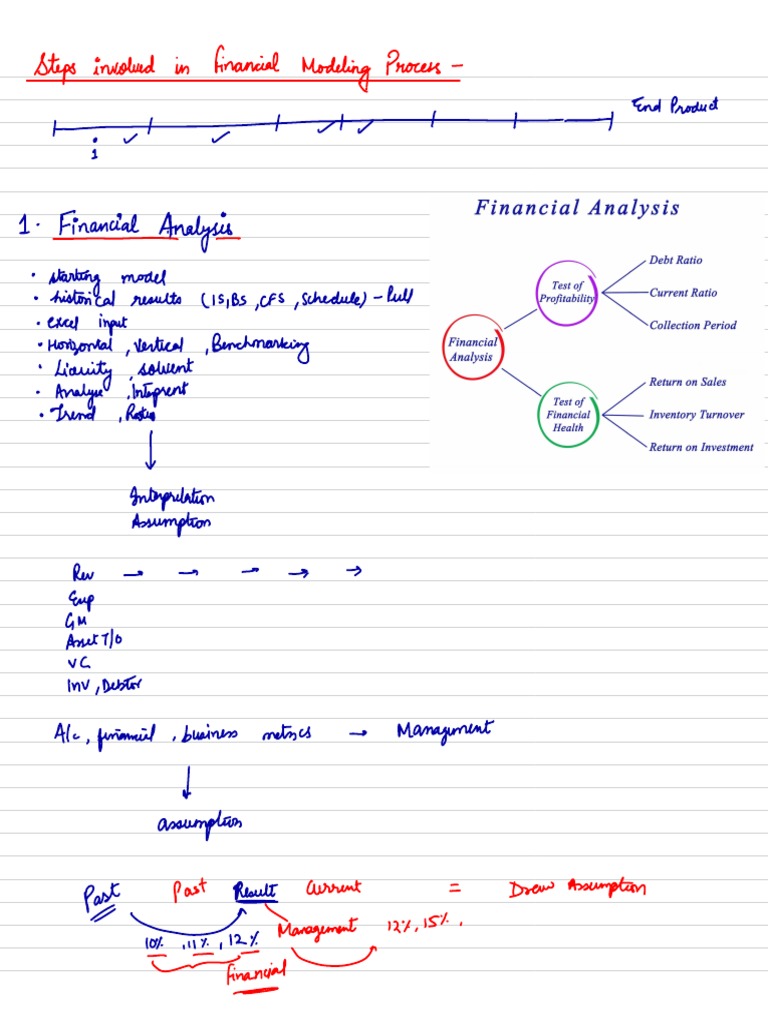 Steps involved in Financial Modeling Process -
End Product
1
1. Financial Analysis
• starting model
• historical results (IS, BS, CFS, Schedule) - Pull
• excel input
• Horizontal, Vertical, Benchmarking
• Liquity, solvent
• Analyse, Interprent
• Trend, Ratio
Interpretation
Assumption
Financial Analysis
Debt Ratio
Test of
Profitability
Current Ratio
Collection Period
Financial
Analysis
Return on Sales
Test of
Financial
Health
Inventory Turnover
Return on Investment
Rev → → → → →
Exp
GM
Asset T/O
VC
INV, Debtor
A/c, financial, business metrics → Management
assumption
Past Past Result Current = Draw Assumption
10%, 11%, 12% Management 12%, 15%,
Financial